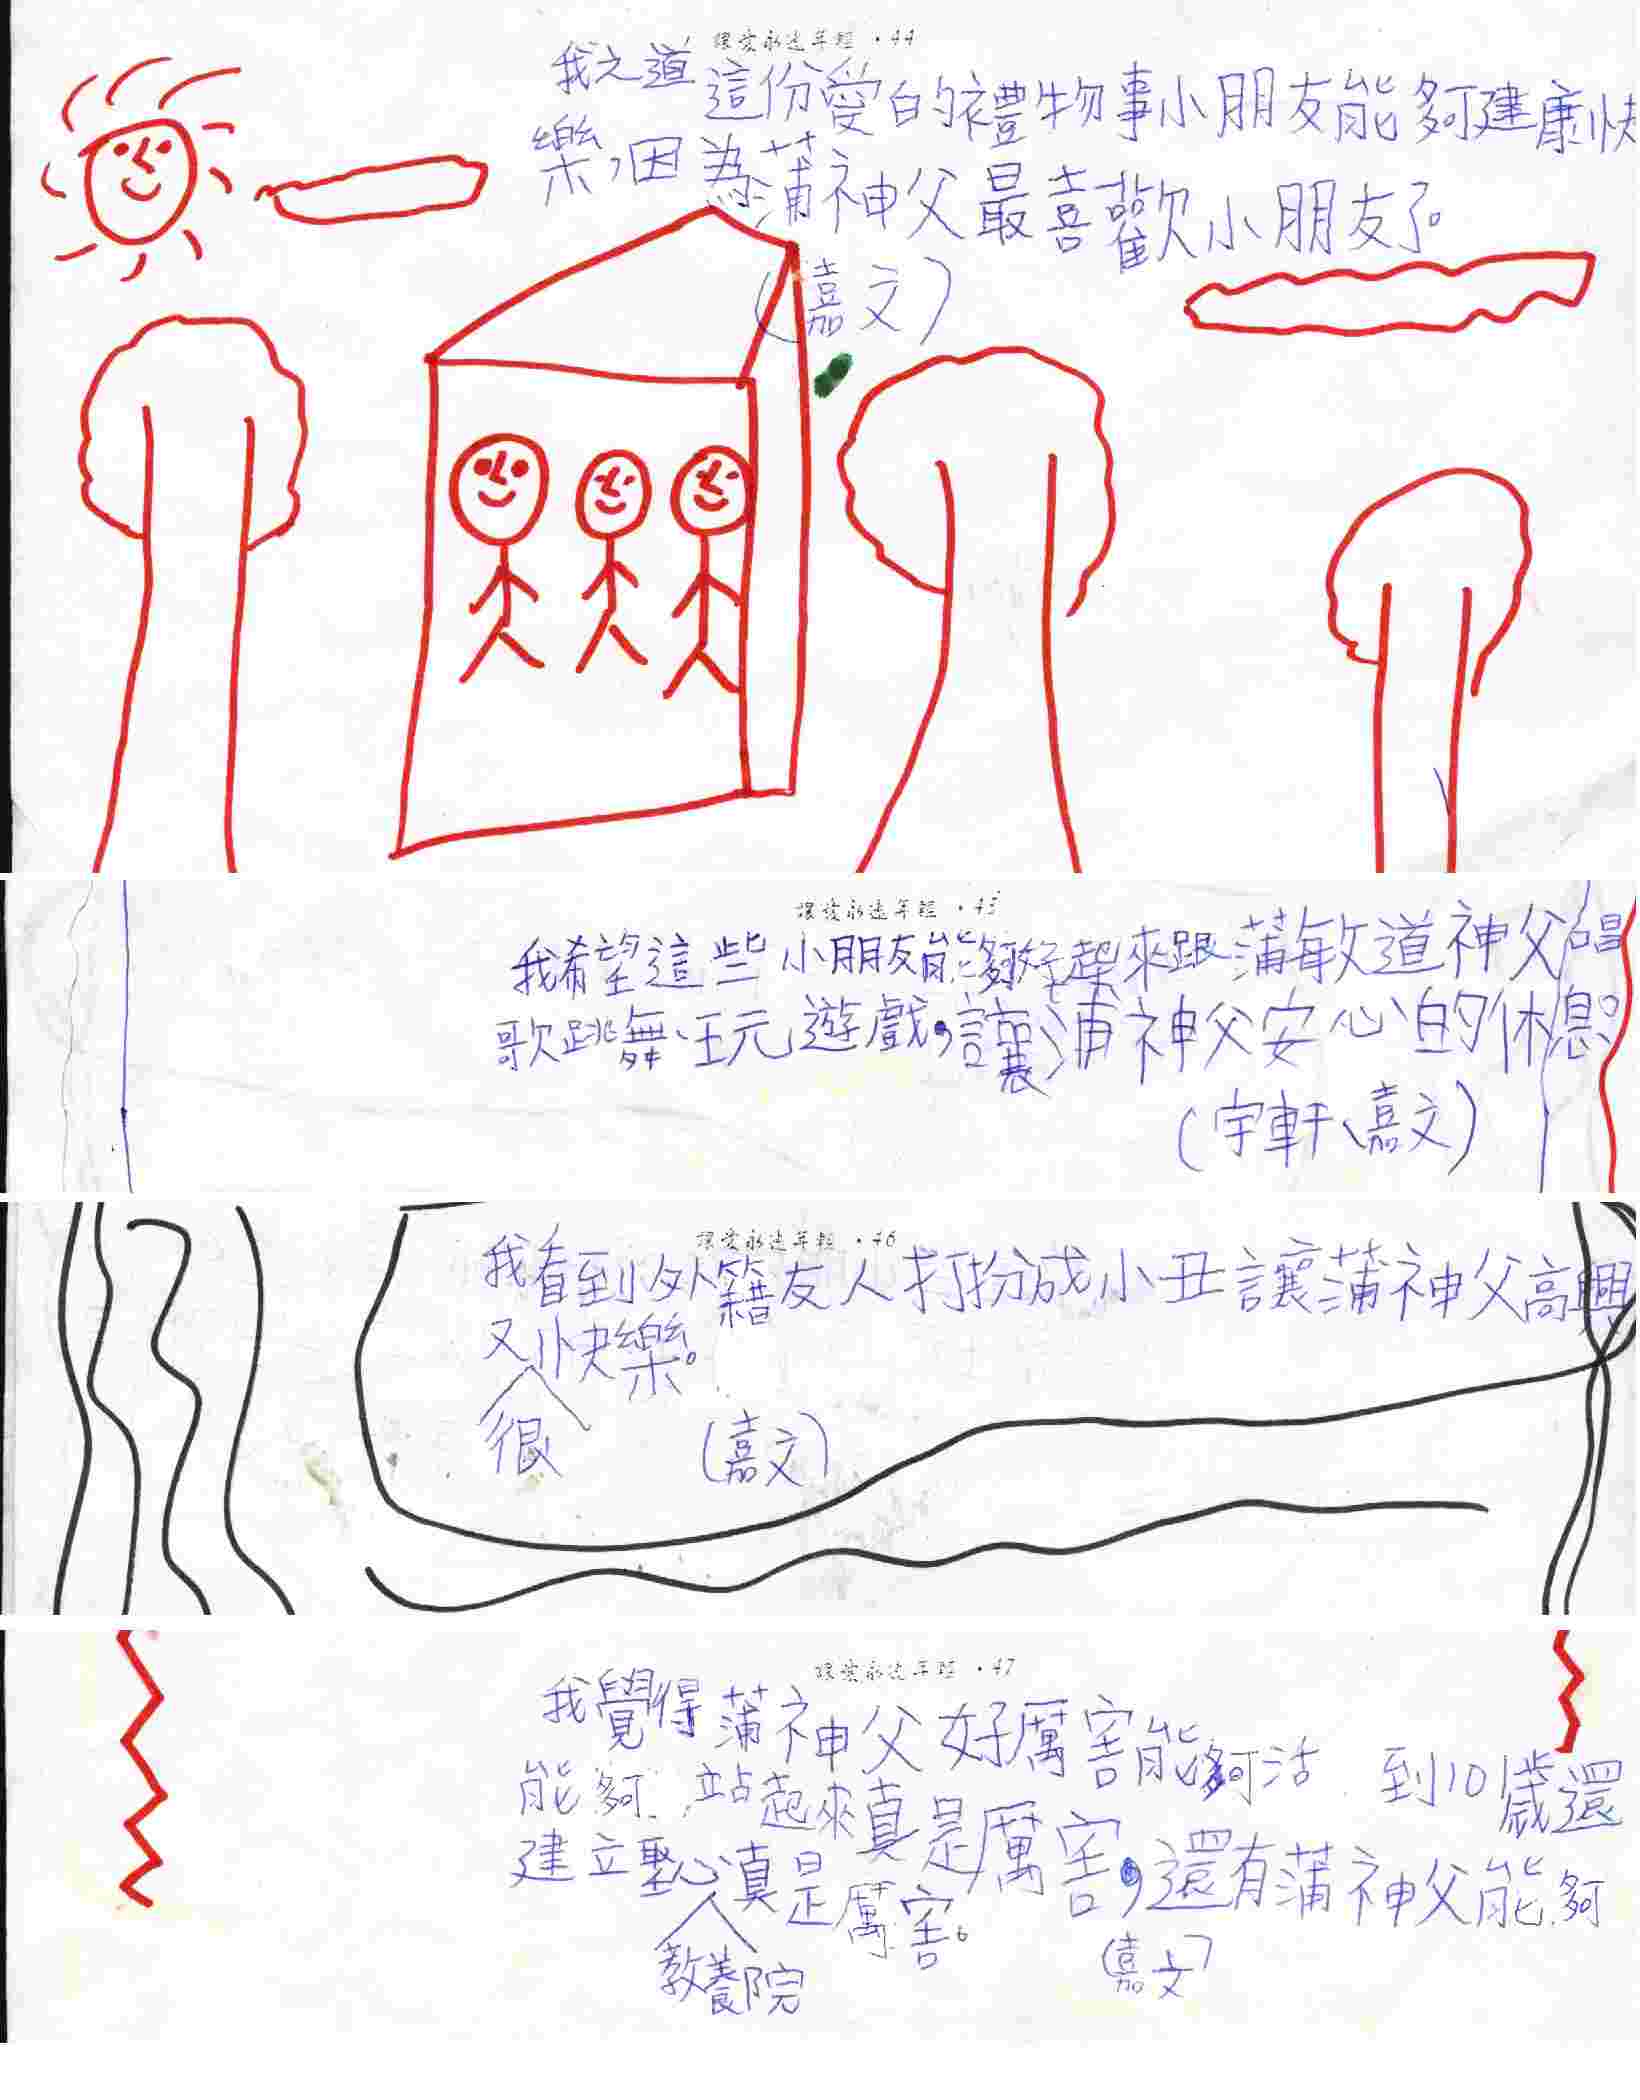 讓愛永遠年輕 · 44
我之道這份愛的禮物事小朋友能夠建康快
樂,因為蒲神父最喜歡小朋友了。
(嘉文)
讓愛永遠年輕 · 45
我希望這些小朋友能夠好起來跟蒲敏道神父唱
歌跳舞、玩遊戲,讓蒲神父安心的休息。
(宇軒、嘉文)
讓愛永遠年輕 · 46
我看到外籍友人打扮成小丑讓蒲神父高興
又快樂。
很
(嘉文)
讓愛永遠年輕 · 47
我覺得蒲神父好厲害能夠活到101歲還
能夠站起來真是厲害,還有蒲神父能夠
建立聖心真是厲害。
教養院
(嘉文)